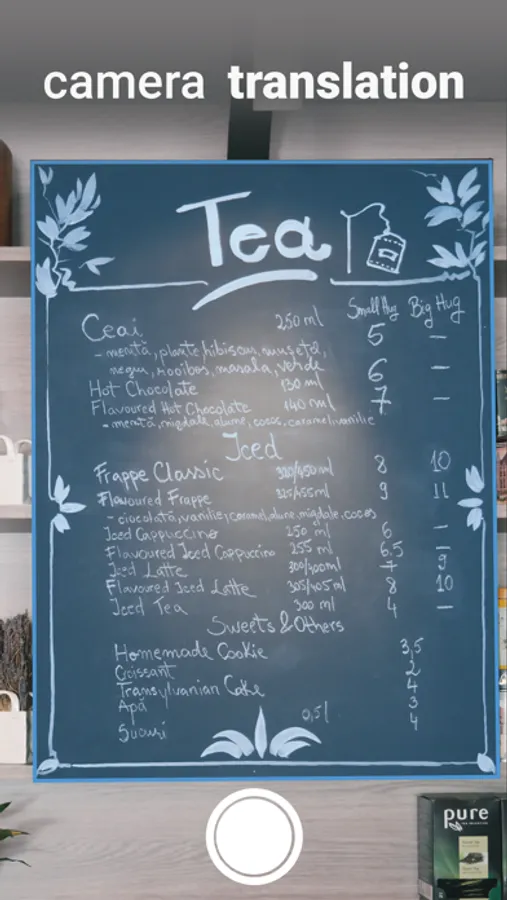 camera translation
Tea
Small Hug Big Hug
Ceai 250 ml 5 -
- mentă, plante, hibiscus, mușețel,
negru, rooibos, masala, verde
Hot Chocolate 130 ml 6 -
Flavoured Hot Chocolate 140 ml 7 -
- mentă, migdale, alune, cocos, caramel, vanilie
Iced
Frappe Classic 320/450ml 8 10
Flavoured Frappe 325/455ml 9 11
- ciocolată, vanilie, caramel, alune, migdale, cocos
Iced Cappuccino 250 ml 6 -
Flavoured Iced Cappuccino 255 ml 6,5 -
Iced Latte 300/400ml 7 9
Flavoured Iced Latte 305/405ml 8 10
Iced Tea 300 ml 4 -
Sweets & Others
Homemade Cookie 3,5
Croissant 2
Transylvanian Cake 4
Apă 0,5l 3
Sucuri 4
pure